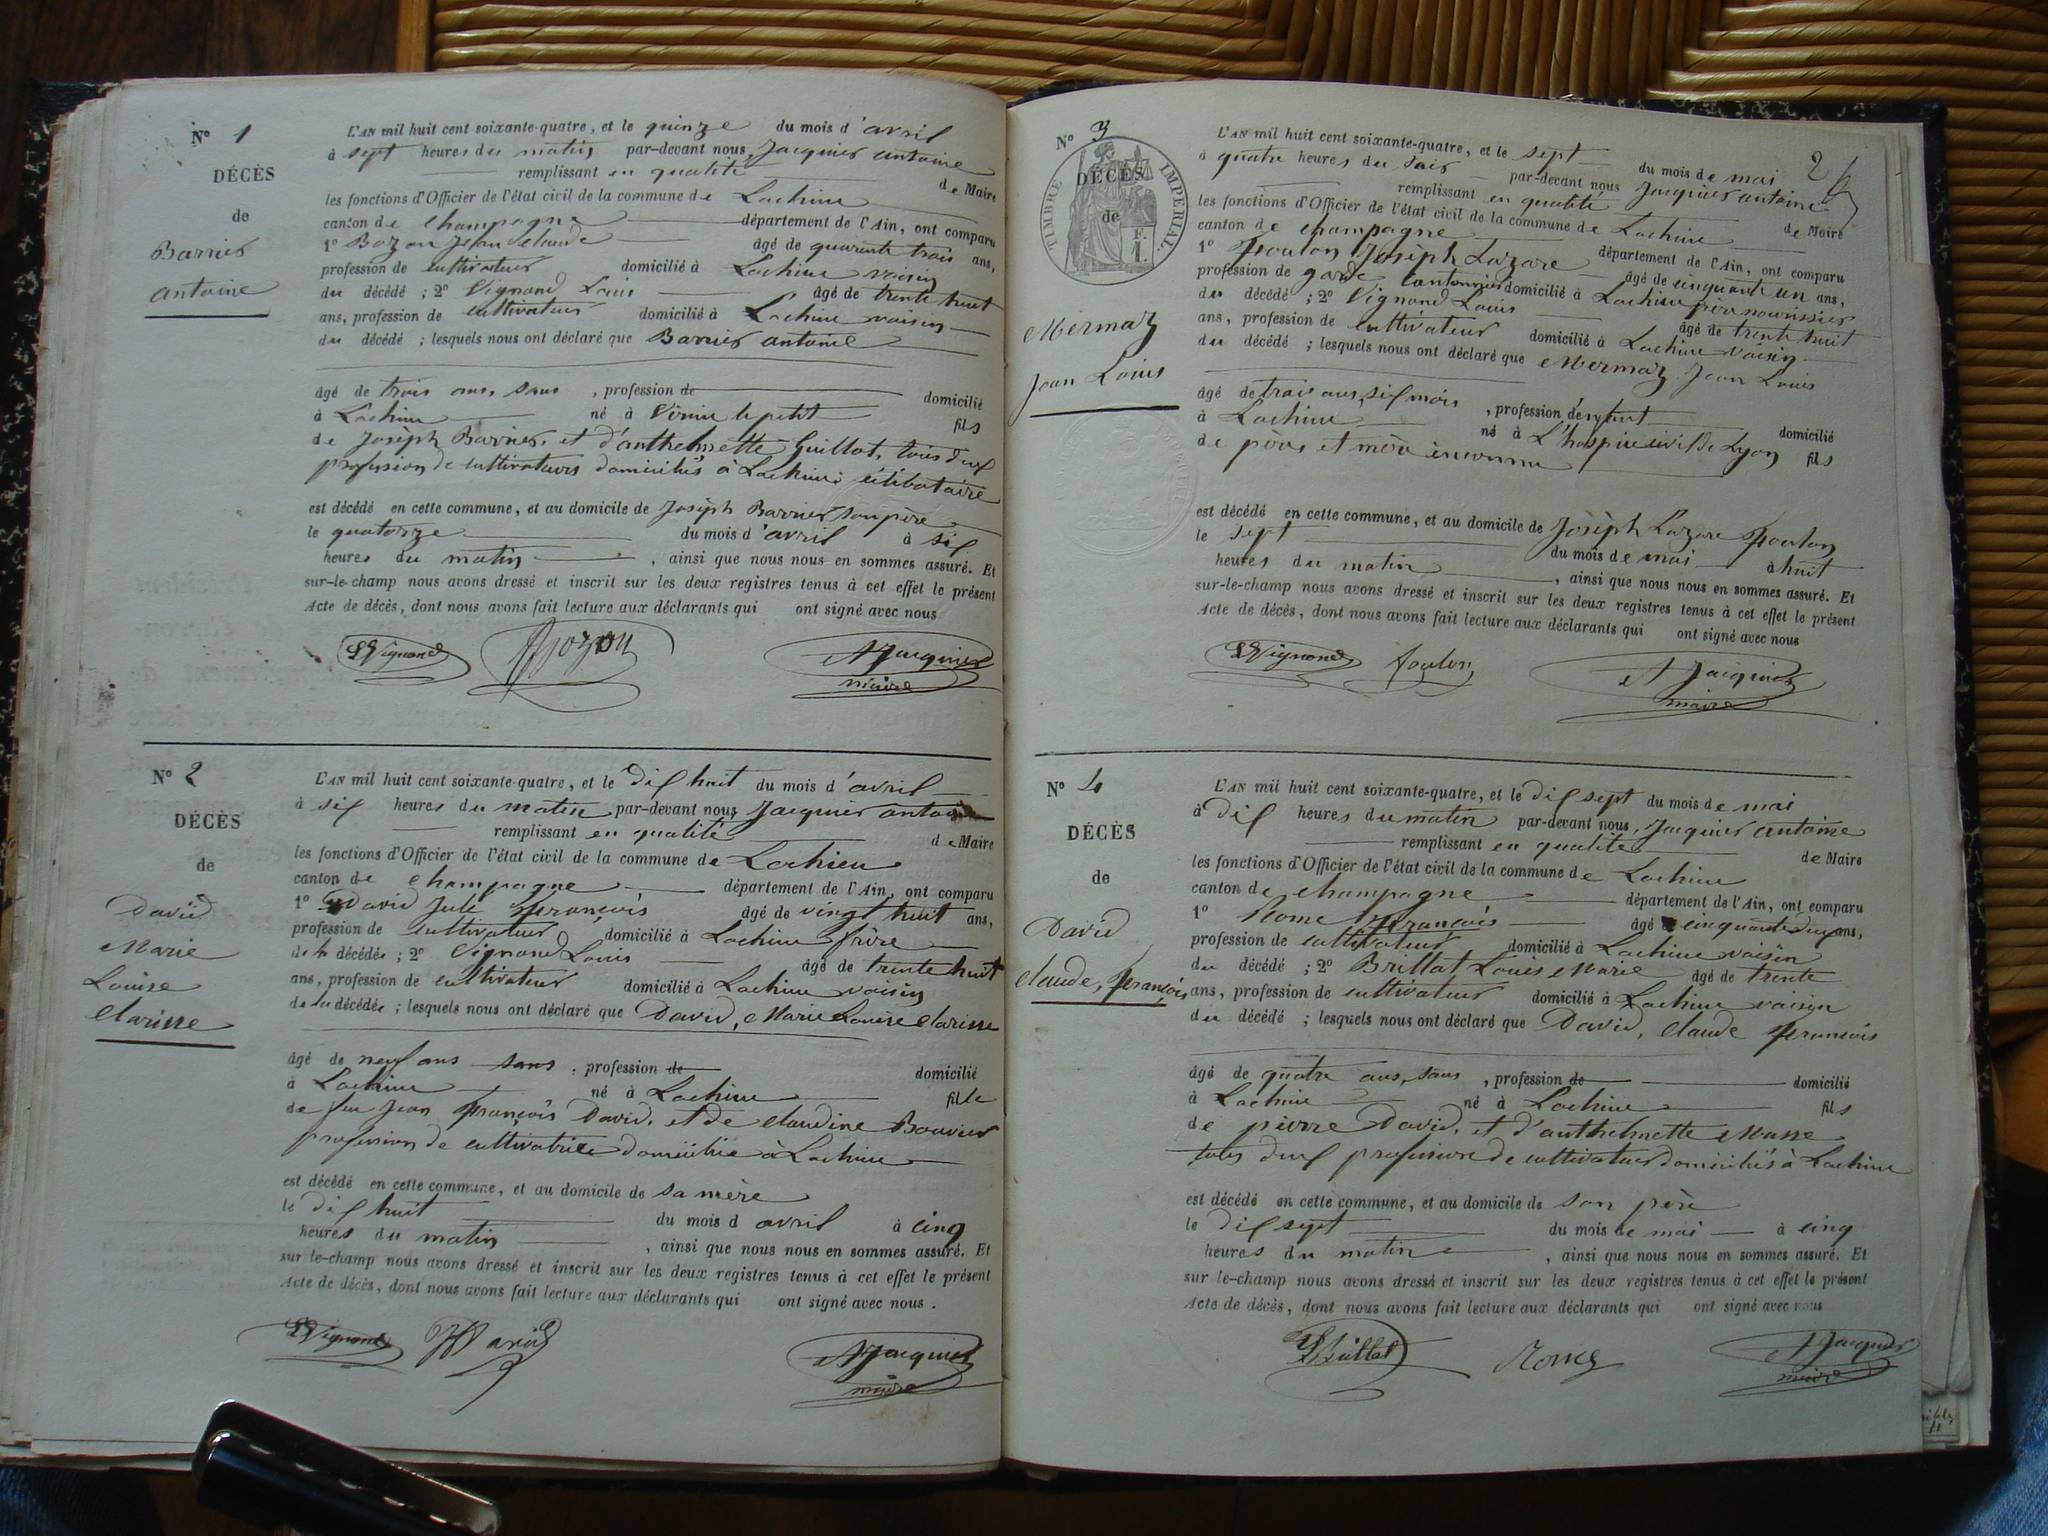 N° 1
DÉCÈS
de
Barrier
antoine
L'AN mil huit cent soixante-quatre, et le quinze du mois d'avril
à sept heures du matin par-devant nous, Jacquier antoine
remplissant en qualité de Maire
les fonctions d'Officier de l'état civil de la commune de Lochieu
canton de champagne département de l'Ain, ont comparu
1° Bozon Jean claude âgé de quarante trois ans,
profession de cultivateur domicilié à Lochieu voisin
du décédé ; 2° Vignand Louis âgé de trente huit
ans, profession de cultivateur domicilié à Lochieu voisin
du décédé ; lesquels nous ont déclaré que Barrier antoine
âgé de trois ans, sans , profession de domicilié
à Lochieu né à Virieu le petit fils
de Josèph Barrier, et d'anthelmette Guillot, tous deux
profession de cultivateurs domiciliés à Lochieu, célibataire
est décédé en cette commune, et au domicile de Josèph Barrier son père
le quatorze du mois d'avril à six
heures du matin , ainsi que nous nous en sommes assuré. Et
sur-le-champ nous avons dressé et inscrit sur les deux registres tenus à cet effet le présent
Acte de décès, dont nous avons fait lecture aux déclarants qui ont signé avec nous
LVignand Bozon AJacquier
maire
N° 2
DÉCÈS
de
David
Marie
Louise
clarisse
L'AN mil huit cent soixante-quatre, et le dix huit du mois d'avril
à six heures du matin par-devant nous, Jacquier antoine
remplissant en qualité de Maire
les fonctions d'Officier de l'état civil de la commune de Lochieu
canton de champagne département de l'Ain, ont comparu
1° David Jule françois âgé de vingt huit ans,
profession de cultivateur domicilié à Lochieu frère
de la décédée ; 2° Vignand Louis âgé de trente huit
ans, profession de cultivateur domicilié à Lochieu voisin
de la décédée ; lesquels nous ont déclaré que David, Marie Louise clarisse
âgé de neuf ans sans , profession de domicilié
à Lochieu né à Lochieu fille
de feu Jean françois David, et de claudine Bouvier
profession de cultivatrice domiciliée à Lochieu
est décédé en cette commune, et au domicile de sa mère
le dix huit du mois d avril à cinq
heures du matin , ainsi que nous nous en sommes assuré. Et
sur le-champ nous avons dressé et inscrit sur les deux registres tenus à cet effet le présent
Acte de décès, dont nous avons fait lecture aux déclarants qui ont signé avec nous .
LVignand David AJacquier
maire
N° 3
TIMBRE IMPÉRIAL.
F.
1.
DÉCÈS
de
Mermaz
Jean Louis
2
L'AN mil huit cent soixante-quatre, et le sept du mois de mai
à quatre heures du soir par-devant nous Jacquier antoine
remplissant en qualité de Maire
les fonctions d'Officier de l'état civil de la commune de Lochieu
canton de champagne département de l'Ain, ont comparu
1° Poulon Josèph Lazare âgé de cinquante un ans,
profession de garde cantonnier domicilié à Lochieu père nourissier
du décédé ; 2° Vignand Louis âgé de trente huit
ans, profession de cultivateur domicilié à Lochieu voisin
du décédé ; lesquels nous ont déclaré que Mermaz Jean Louis
âgé de trois ans, six mois , profession d'enfant domicilié
à Lochieu né à L'hospice civil de Lyon fils
de père et mère inconnu
est décédé en cette commune, et au domicile de Josèph Lazare Poulon
le sept du mois de mai à huit
heures du matin , ainsi que nous nous en sommes assuré. Et
sur-le-champ nous avons dressé et inscrit sur les deux registres tenus à cet effet le présent
Acte de décès, dont nous avons fait lecture aux déclarants qui ont signé avec nous
LVignand Poulon A Jacquier
maire
N° 4
DÉCÈS
de
David
claude, françois
L'AN mil huit cent soixante-quatre, et le dix sept du mois de mai
à dix heures du matin par-devant nous, Jacquier antoine
remplissant en qualité de Maire
les fonctions d'Officier de l'état civil de la commune de Lochieu
canton de champagne département de l'Ain, ont comparu
1° françois âgé cinquante deux ans,
profession de cultivateur domicilié à Lochieu voisin
du décédé ; 2° Brillat Louis Marie âgé de trente
ans, profession de cultivateur domicilié à Lochieu voisin
du décédé ; lesquels nous ont déclaré que David, claude françois
âgé de quatre ans, sans , profession de domicilié
à Lochieu né à Lochieu fils
de pierre David, et d'anthelmette Masse
tous deux profession de cultivateur domiciliés à Lochieu
est décédé en cette commune, et au domicile de son père
le dix sept du mois de mai à cinq
heures du matin , ainsi que nous nous en sommes assuré. Et
sur le-champ nous avons dressé et inscrit sur les deux registres tenus à cet effet le présent
Acte de décès, dont nous avons fait lecture aux déclarants qui ont signé avec nous
Brillat A Jacquier
maire